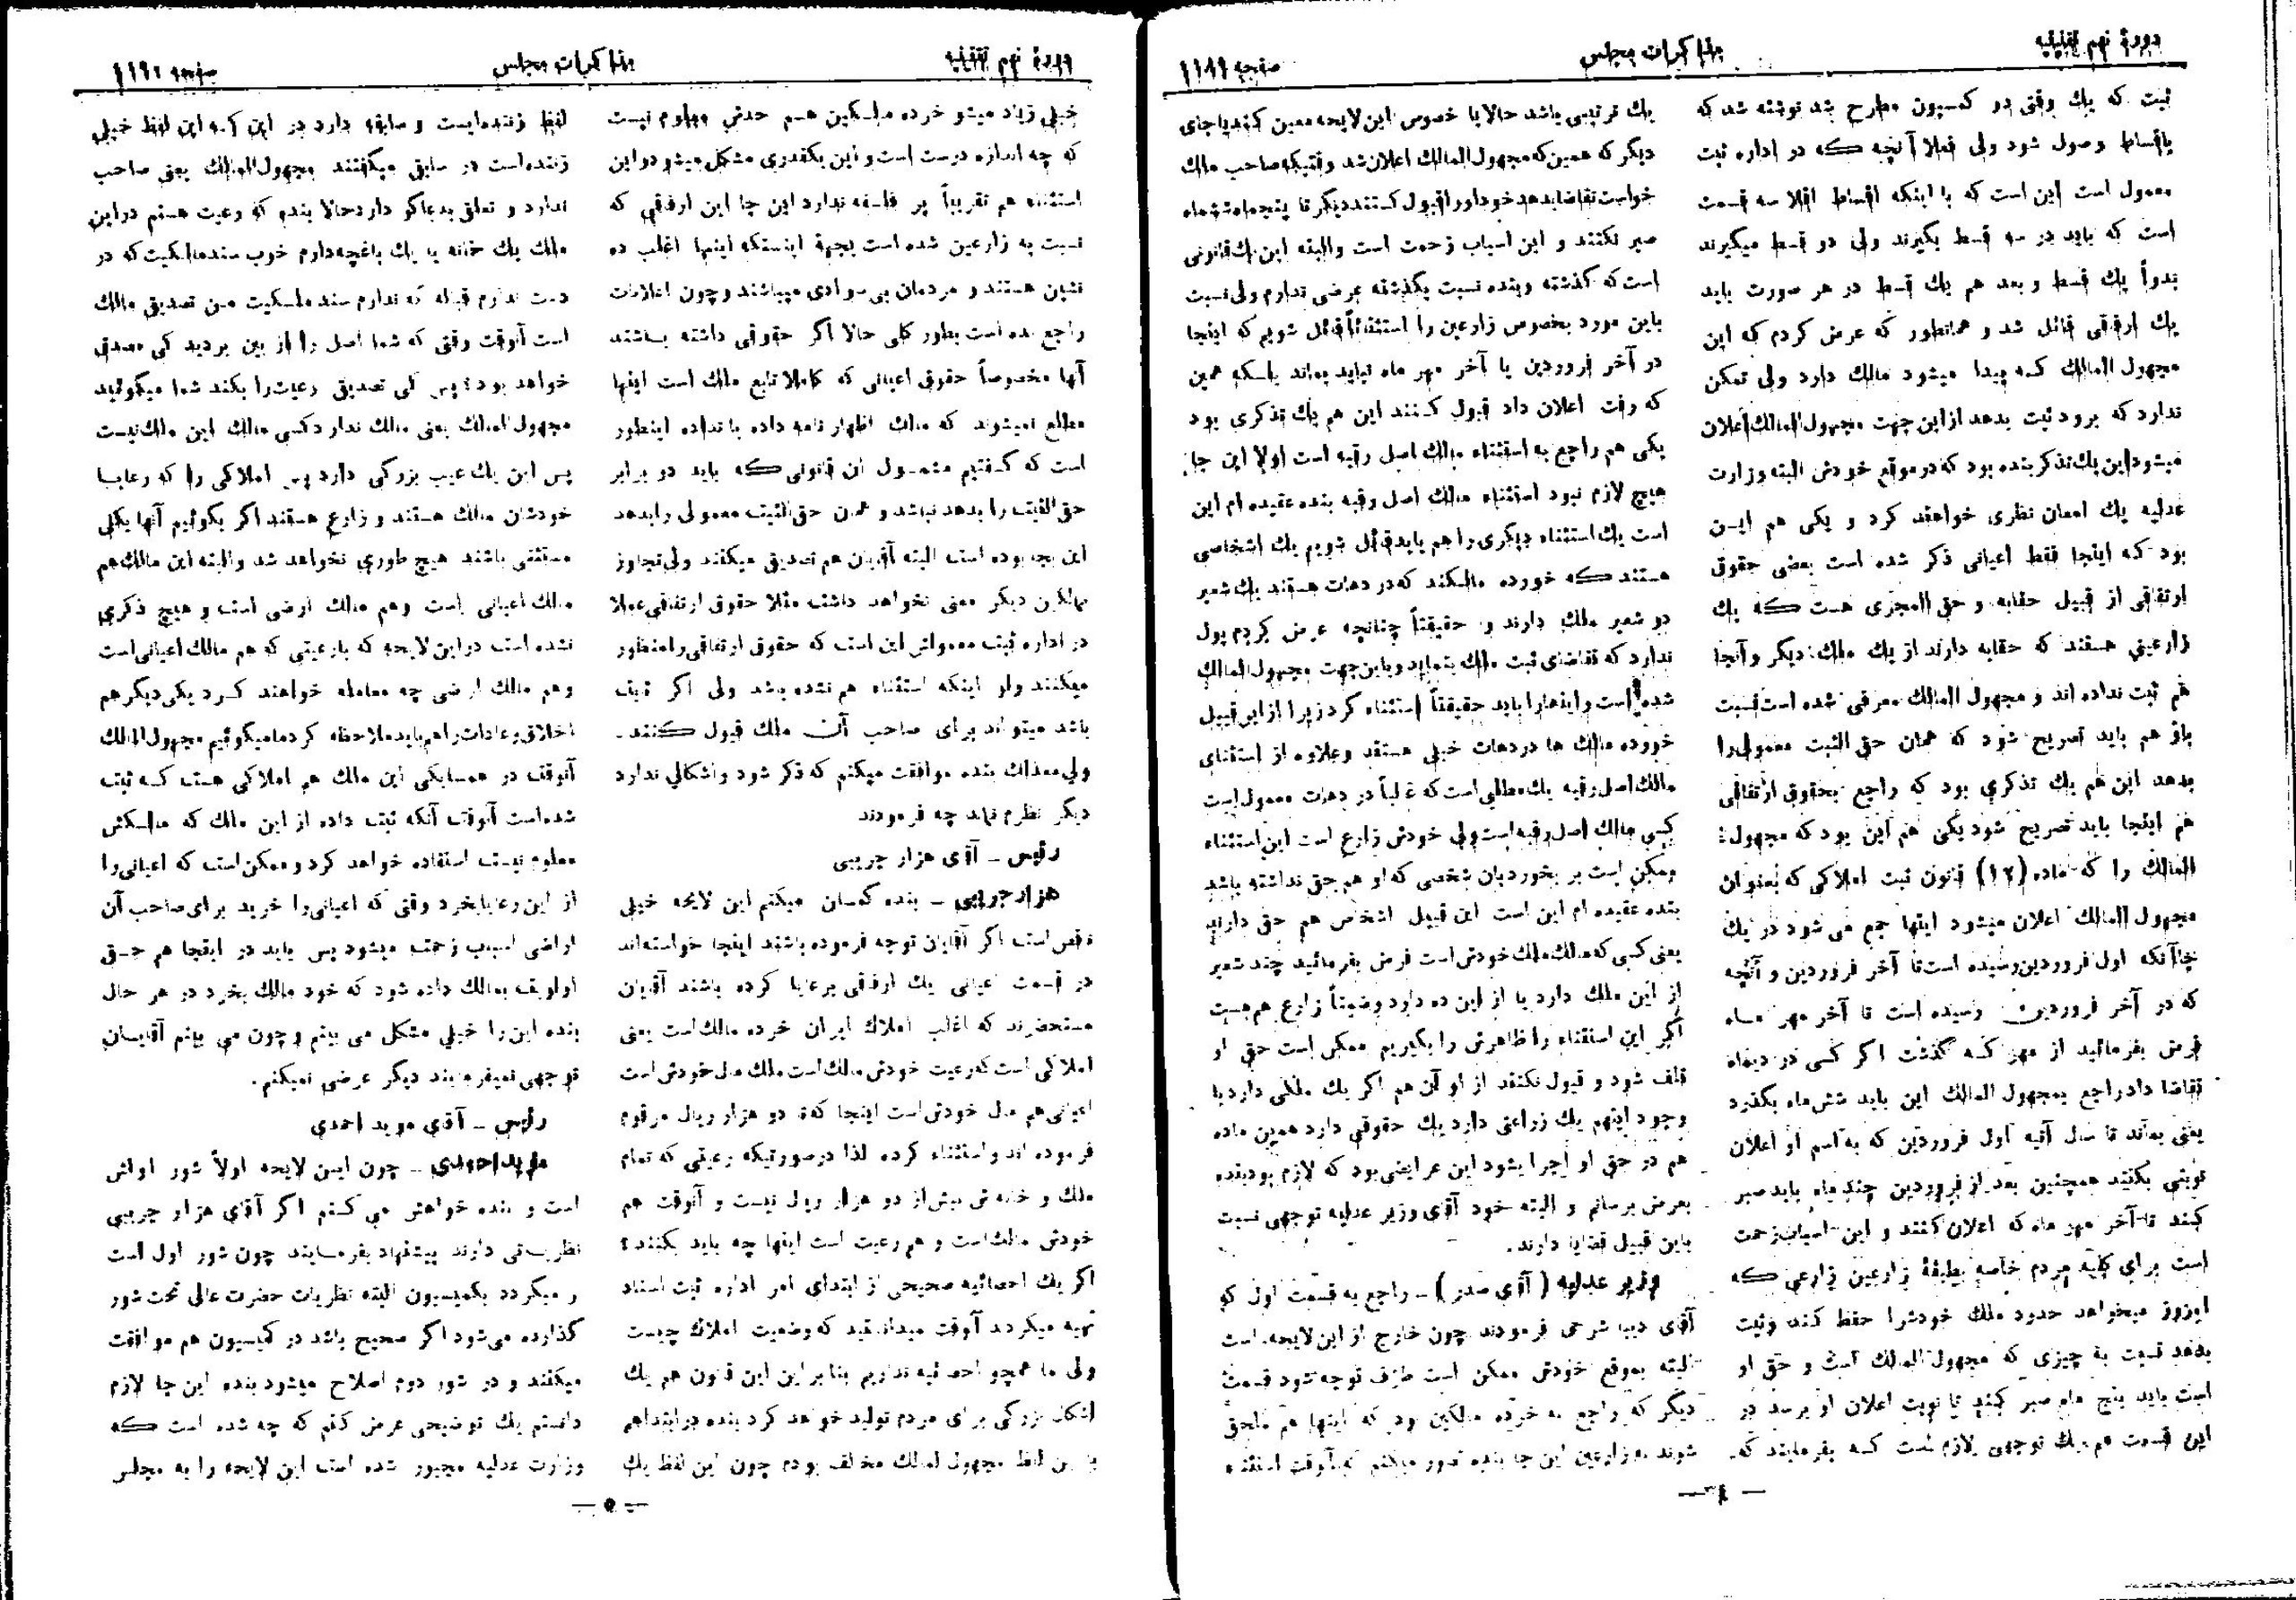 دورهٔ نهم تقنینیه
مذاکرات مجلس
صفحه ۱۱۸۹
ثبت که یك وقتی در کمسیون مطرح شد نوشته شد که
باقساط وصول شود ولی فعلا آنچه که در اداره ثبت
معمول است این است که با اینکه اقساط اقلا سه قسمت
است که باید در سه قسط بگیرند ولی دو قسط میگیرند
بدواً یك قسط و بعد هم یك قسط در هر صورت باید
یك ارفاقی قائل شد و همانطور که عرض کردم که این
مجهول المالك که پیدا میشود مالك دارد ولی تمکن
ندارد که برود ثبت بدهد از این جهت مجهول المالك اعلان
میشود این یك تذکر بنده بود که در موقع خودش البته وزارت
عدلیه یك امعان نظری خواهند کرد و یکی هم ایـن
بود که اینجا فقط اعیانی ذکر شده است بعضی حقوق
ارتفاقی از قبیل حقابه و حق المجری هست که یك
زارعینی هستند که حقابه دارند از یك ملك دیگر و آنجا
هم ثبت نداده اند و مجهول المالك معرفی شده است نسبت
باو هم باید تصریح شود که همان حق الثبت معمولی را
بدهد این هم یك تذکری بود که راجع بحقوق ارتفاقی
هم اینجا باید تصریح شود یکی هم این بود که مجهول
المالك را که ماده (۱۲) قانون ثبت املاکی که بعنوان
مجهول المالك اعلان میشود اینها جمع می شود در یك
جا آنکه اول فروردین رسیده است تا آخر فروردین و آنچه
که در آخر فروردین رسیده است تا آخر مهر مـاه
فرض بفرمائید از مهر که گذشت اگر کسی در دیماه
تقاضا داد راجع بمجهول المالك این باید شش ماه بگذرد
یعنی بماند تا سال آتیه اول فروردین که به اسم او اعلان
نوبتی بکنند همچنین بعد از فروردین چند ماه باید صبر
کند تا آخر مهر ماه که اعلان کنند و این اسباب زحمت
است برای کلیه مردم خاصه طبقهٔ زارعین زارعی که
امروز میخواهد حدود ملك خودش را حفظ کند و ثبت
بدهد نسبت به چیزی که مجهول المالك است و حق او
است باید پنج ماه صبر کند تا نوبت اعلان او برسد در
این قسمت هم یك توجهی لازم است که بفرمایند که
یك ترتیبی باشد حالا یا خصوص این لایحه معین کنند یا جای
دیگر که همین که مجهول المالك اعلان شد وقتیکه صاحب ملك
خواست تقاضا بدهد خود او را قبول کنند دیگر تا پنجماه ششماه
صبر نکنند و این اسباب زحمت است والبته این یك قانونی
است که گذشته و بنده نسبت بگذشته عرضی ندارم ولی نسبت
باین مورد بخصوص زارعین را استثنائاً قائل شویم که اینجا
در آخر فروردین یا آخر مهر ماه نباید بماند بلـکه همین
که رفت اعلان داد قبول کـنند این هم یك تذکری بود
یکی هم راجع به استثناء مالك اصل رقبه است اولا این جا
هیچ لازم نبود استثناء مالك اصل رقبه بنده عقیده ام این
است یك استثناء دیگری را هم باید قائل شویم یك اشخاصی
هستند که خورده مالکند که در دهات هستند یك شعیر
دو شعیر ملك دارند و حقیقتاً چنانچه عرض کردم پول
ندارد که تقاضای ثبت ملك بنماید و باین جهت مجهول المالك
شده است و اینها را باید حقیقتاً استثناء کرد زیرا از این قبیل
خورده مالك ها در دهات خیلی هستند و علاوه از استثنای
مالك اصل رقبه یك مطلبی است که غالباً در دهات معمول است
کسی مالك اصل رقبه است ولی خودش زارع است این استثناء
ممکن است بر بخورد بان شخصی که او هم حق نداشته باشد
بنده عقیده ام این است این قبیل اشخاص هم حق دارند
یعنی کسی که مالك ملك خودش است فرض بفرمائید چند شعیر
از این ملك دارد یا از این ده دارد و ضمناً زارع هم هست
اگر این استثناء را ظاهرش را بگیریم ممکن است حق او
تلف شود و قبول نکنند از او آن هم اگر یك ملکی دارد با
وجود اینهم یك زراعتی دارد یك حقوقی دارد همین ماده
هم در حق او اجرا بشود این عرایضی بود که لازم بود بنده
بعرض برسانم و البته خود آقای وزیر عدلیه توجهی نسبت
باین قبیل قضایا دارند.
وزیر عدلیه (آقای صدر) ـ راجع به قسمت اول که
آقای دیبا شرحی فرمودند چون خارج از این لایحه است
البته بموقع خودش ممکن است طرف توجه شود قسمت
دیگر که راجع به خرده مالکین بود که اینها هم ملحق
شوند به زارعین این جا بنده تصور میکنم که آنوقت استثناء
ـ ٤ ـ
دورهٔ نهم تقنینیه
مذاکرات مجلس
صفحه ۱۱۹۰
خیلی زیاد میشو خرده مـالـکین هـم حدش معلوم نیست
که چه اندازه درست است و این یکقدری مشکل میشو دو این
استثناء هم تقریباً پر فلسفه ندارد این جا این ارفاقی که
نسبت به زارعین شده است بجهة اینستکه اینها اغلب ده
نشین هستند و مردمان بی سوادی میباشند و چون اعلانات
راجع شده است بطور کلی حالا اگر حقوقی داشته بـاشند
آنها مخصوصاً حقوق اعیانی که کاملا تابع ملك است اینها
مطلع نمیشوند که مالك اظهار نامه داده یا نداده اینطور
است که گـفتیم مشمـول آن قانونی که باید دو برابر
حق الثبت را بدهد نباشد و همان حق الثبت معمولی را بدهد
این بجا بوده است البته آقایان هم تصدیق میکنند ولی تجاوز
بمالکین دیگر معنی نخواهد داشت مثلا حقوق ارتفاقی عملا
در اداره ثبت معمولش این است که حقوق ارتفاقی را منظور
میکنند ولو اینکه استثناء هم نشده باشد ولی اگر ثبت
باشد میتواند برای صاحب آن ملك قبول کنند.
ولی معذلك بنده موافقت میکنم که ذکر شود و اشکالی ندارد
دیگر نظرم نماند چه فرمودند
رئیس ـ آقای هزار جریبی
هزارجریبی ـ بنده گمـان میکنم این لایحه خیلی
ناقص است اگر آقایان توجه فرموده باشند اینجا خواسته اند
در قسمت اعیانی یك ارفاقی برعایا کرده باشند آقایان
مستحضرند که اغلب املاك ایران خرده مالك است یعنی
املاکی است که رعیت خودش مالك است ملك مال خودش است
اعیانی هم مال خودش است اینجا که تا دو هزار ریال مرقوم
فرموده اند و استثناء کرده لذا درصورتیکه رعیتی که تمام
ملك و خانه ش بیش از دو هزار ریال نیست و آنوقت هم
خودش مالك است و هم رعیت است اینها چه باید بکنند؟
اگر یك احصائیه صحیحی از ابتدای امر اداره ثبت اسناد
تهیه میکردند آنوقت میدانستید که وضعیت املاك چیست
ولی ما همچو احصائیه نداریم بنا بر این این قانون هم یك
اشکال بزرگی برای مردم تولید خواهد کرد بنده در ابتدا هم
با این لفظ مجهول المالك مخالف بودم چون این لفظ یك
لفظ زننده ایست و سابقه دارد در این که این لفظ خیلی
زننده است در سابق میگفتند مجهول المالك یعنی صاحب
ندارد و تعلق بدعاگو دارد حالا بنده که رعیت هستم دراین
ملك یك خانه یا یك باغچه دارم خوب سند مالکیت که در
دست ندارم قباله که ندارم سند مالـکیت من تصدیق مالك
است آنوقت وقتی که شما اصل را از بین بردید کی مصدق
خواهد بود؟ پس کی تصدیق رعیت را بکند شما میگوئید
مجهول المالك یعنی مالك ندارد کسی مالك این ملك نیست
پس این یك عیب بزرگی دارد پس املاکی را که رعایـا
خودشان مالك هستند و زارع هستند اگر بگوئیم آنها بکلی
مستثنی باشند هیچ طوری نخواهد شد والبته این مالك هم
مالك اعیانی است وهم مالك ارضی است و هیچ ذکری
نشده است در این لایحه که با رعیتی که هم مالك اعیانی است
وهم مالك ارضی چه معامله خواهند کـرد یکی دیگر هم
اخلاق و عادات را هم باید ملاحظه کرد ما میگوئیم مجهول المالك
آنوقت در همسایگی این مالك هم املاکی هست کـه ثبت
شده است آنوقت آنکه ثبت داده از این ملك که مالـکش
معلوم نیست استفاده خواهد کرد و ممکن است که اعیانی را
از این رعایا بخرد وقتی که اعیانی را خرید برای صاحب آن
اراضی اسباب زحمت میشود پس باید در اینجا هم حـق
اولویت بمالك داده شود که خود مالك بخرد در هر حال
بنده این را خیلی مشکل می بینم و چون می بینم آقایـان
توجهی نمیفرمایند دیگر عرضی نمیکنم.
رئیس ـ آقای موید احمدی
مؤید احمدی ـ چون ایـن لایحه اولاً شور اولش
است و بنده خواهش می کـنم اگر آقای هزار جریبی
نظریـاتی دارند پیشنهاد بفرمـایند چون شور اول است
و میگردد بکمیسیون البته نظریات حضرت عالی تحت شور
گذارده می شود اگر صحیح باشد در کمیسیون هم موافقت
میکنند و در شور دوم اصلاح میشود بنده این جا لازم
دانستم یك توضیحی عرض کنم که چه شده است که
وزارت عدلیه مجبور شده است این لایحه را به مجلس
ـ ٥ ـ